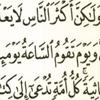 وَلَٰكِنَّ أَكْثَرَ النَّاسِ لَا
وَيَوْمَ تَقُومُ السَّاعَةُ
كُلُّ أُمَّةٍ تُدْعَىٰ إِلَىٰ